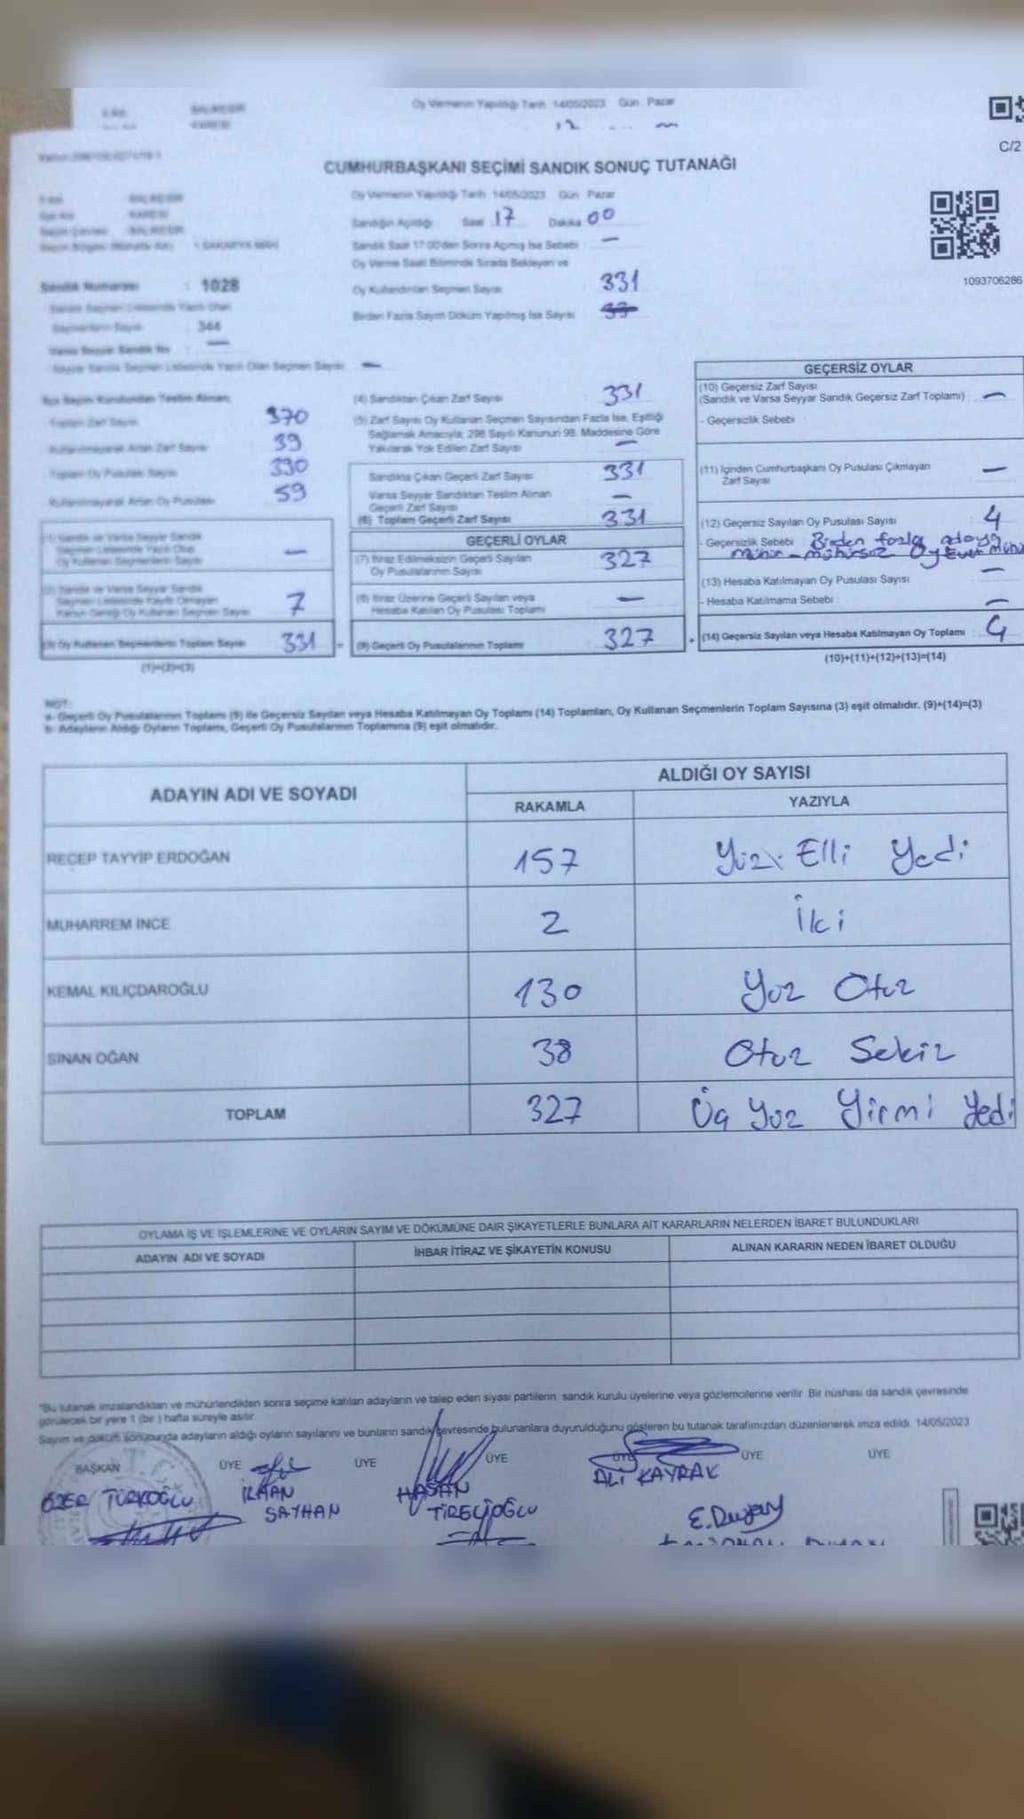 Oy Vermenin Yapıldığı Tarih 14/05/2023 Gün Pazar
C/2
CUMHURBAŞKANI SEÇİMİ SANDIK SONUÇ TUTANAĞI
Oy Vermenin Yapıldığı Tarih 14/05/2023 Gün Pazar
Sandığın Açıldığı Saat 17 Dakika 00
Sandık Saat 17:00'den Sonra Açılmış İse Sebebi : —
Oy Verme Saati Bitiminde Sırada Bekleyen ve
Oy Kullandırılan Seçmen Sayısı 331
Birden Fazla Sayım Döküm Yapılmış İse Sayısı
1093706286
Sandık Numarası : 1028
Seçmenlerin Sayısı : 344
Varsa Seyyar Sandık No : —
Seyyar Sandık Seçmen Listesinde Yazılı Olan Seçmen Sayısı : —
İlçe Seçim Kurulundan Teslim Alınan;
Toplam Zarf Sayısı 370
Kullanılmayarak Artan Zarf Sayısı 39
Toplam Oy Pusulası Sayısı 390
Kullanılmayarak Artan Oy Pusulası 59
(1) Sandık ve Varsa Seyyar Sandık
Seçmen Listesinde Yazılı Olup
Oy Kullanan Seçmenlerin Sayısı —
(2) Sandık ve Varsa Seyyar Sandık
Seçmen Listesinde Kaydı Olmayan
Kanun Gereği Oy Kullanan Seçmen Sayısı 7
(3) Oy Kullanan Seçmenlerin Toplam Sayısı 331
(1)+(2)=(3)
(4) Sandıktan Çıkan Zarf Sayısı 331
(5) Zarf Sayısı Oy Kullanan Seçmen Sayısından Fazla İse, Eşitliği
Sağlamak Amacıyla, 298 Sayılı Kanunun 98. Maddesine Göre
Yakılarak Yok Edilen Zarf Sayısı —
Sandıkta Çıkan Geçerli Zarf Sayısı 331
Varsa Seyyar Sandıktan Teslim Alınan
Geçerli Zarf Sayısı —
(6) Toplam Geçerli Zarf Sayısı 331
GEÇERLİ OYLAR
(7) İtiraz Edilmeksizin Geçerli Sayılan
Oy Pusulalarının Sayısı 327
(8) İtiraz Üzerine Geçerli Sayılan veya
Hesaba Katılan Oy Pusulası Toplamı —
(9) Geçerli Oy Pusulalarının Toplamı 327
GEÇERSİZ OYLAR
(10) Geçersiz Zarf Sayısı
(Sandık ve Varsa Seyyar Sandık Geçersiz Zarf Toplamı) —
- Geçersizlik Sebebi
(11) İçinden Cumhurbaşkanı Oy Pusulası Çıkmayan
Zarf Sayısı —
(12) Geçersiz Sayılan Oy Pusulası Sayısı 4
- Geçersizlik Sebebi Birden fazla adaya
mühür - mühürsüz oy
(13) Hesaba Katılmayan Oy Pusulası Sayısı —
- Hesaba Katılmama Sebebi —
(14) Geçersiz Sayılan veya Hesaba Katılmayan Oy Toplamı 4
(10)+(11)+(12)+(13)=(14)
NOT:
a- Geçerli Oy Pusulalarının Toplamı (9) ile Geçersiz Sayılan veya Hesaba Katılmayan Oy Toplamı (14) Toplamları, Oy Kullanan Seçmenlerin Toplam Sayısına (3) eşit olmalıdır. (9)+(14)=(3)
b- Adayların Aldığı Oyların Toplamı, Geçerli Oy Pusulalarının Toplamına (9) eşit olmalıdır.
ADAYIN ADI VE SOYADI ALDIĞI OY SAYISI
RAKAMLA YAZIYLA
RECEP TAYYİP ERDOĞAN 157 Yüz Elli Yedi
MUHARREM İNCE 2 İki
KEMAL KILIÇDAROĞLU 130 Yüz Otuz
SİNAN OĞAN 38 Otuz Sekiz
TOPLAM 327 Üç Yüz Yirmi Yedi
OYLAMA İŞ VE İŞLEMLERİNE VE OYLARIN SAYIM VE DÖKÜMÜNE DAİR ŞİKAYETLERLE BUNLARA AİT KARARLARIN NELERDEN İBARET BULUNDUKLARI
ADAYIN ADI VE SOYADI İHBAR İTİRAZ VE ŞİKAYETİN KONUSU ALINAN KARARIN NEDEN İBARET OLDUĞU
"Bu tutanak imzalandıktan ve mühürlendikten sonra seçime katılan adayların ve talep eden siyasi partilerin sandık kurulu üyelerine veya gözlemcilerine verilir. Bir nüshası da sandık çevresinde
görülecek bir yere 1 (bir) hafta süreyle asılır.
Sayım ve döküm sonucunda adayların aldığı oyların sayılarını ve bunların sandık çevresinde bulunanlara duyurulduğunu gösteren bu tutanak tarafımızdan düzenlenerek imza edildi. 14/05/2023
BAŞKAN ÜYE ÜYE ÜYE ÜYE ÜYE ÜYE
ÖZER TÜRKOĞLU İLHAN SAYHAN HASAN TİRELİOĞLU ALİ KAYRAK
E. Duyan